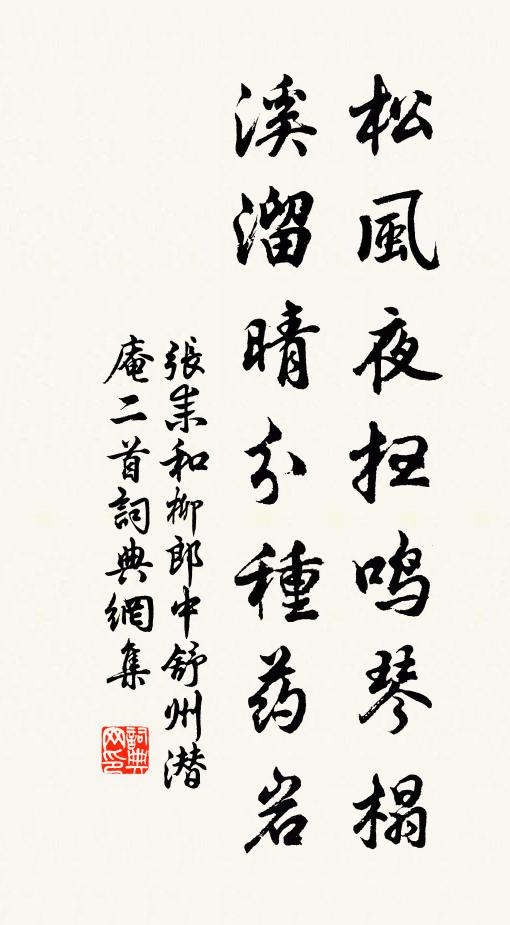 松風夜扫鸣琴榻
溪溜晴分種药岩
張耒和柳郎中舒州潜
庵二首詞典網集
詞典网印